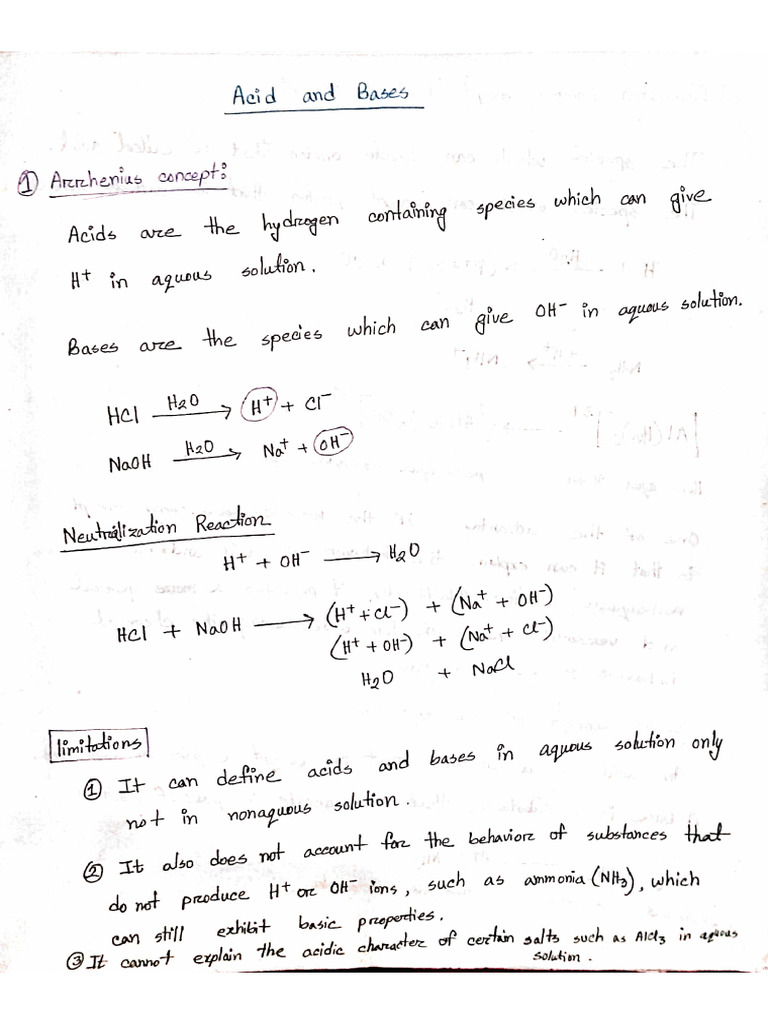 Acid and Bases
① Arrhenius concept:
Acids are the hydrogen containing species which can give
H⁺ in aquous solution.
Bases are the species which can give OH⁻ in aquous solution.
HCl —H₂O→ H⁺ + Cl⁻
NaOH —H₂O→ Na⁺ + OH⁻
Neutralization Reaction
H⁺ + OH⁻ ⟶ H₂O
HCl + NaOH ⟶ (H⁺ + Cl⁻) + (Na⁺ + OH⁻)
(H⁺ + OH⁻) + (Na⁺ + Cl⁻)
H₂O + NaCl
limitations
① It can define acids and bases in aquous solution only
not in nonaquous solution.
② It also does not account for the behavior of substances that
do not produce H⁺ or OH⁻ ions, such as ammonia (NH₃), which
can still exhibit basic properties.
③ It cannot explain the acidic character of certain salts such as AlCl₃ in aquous
solution.